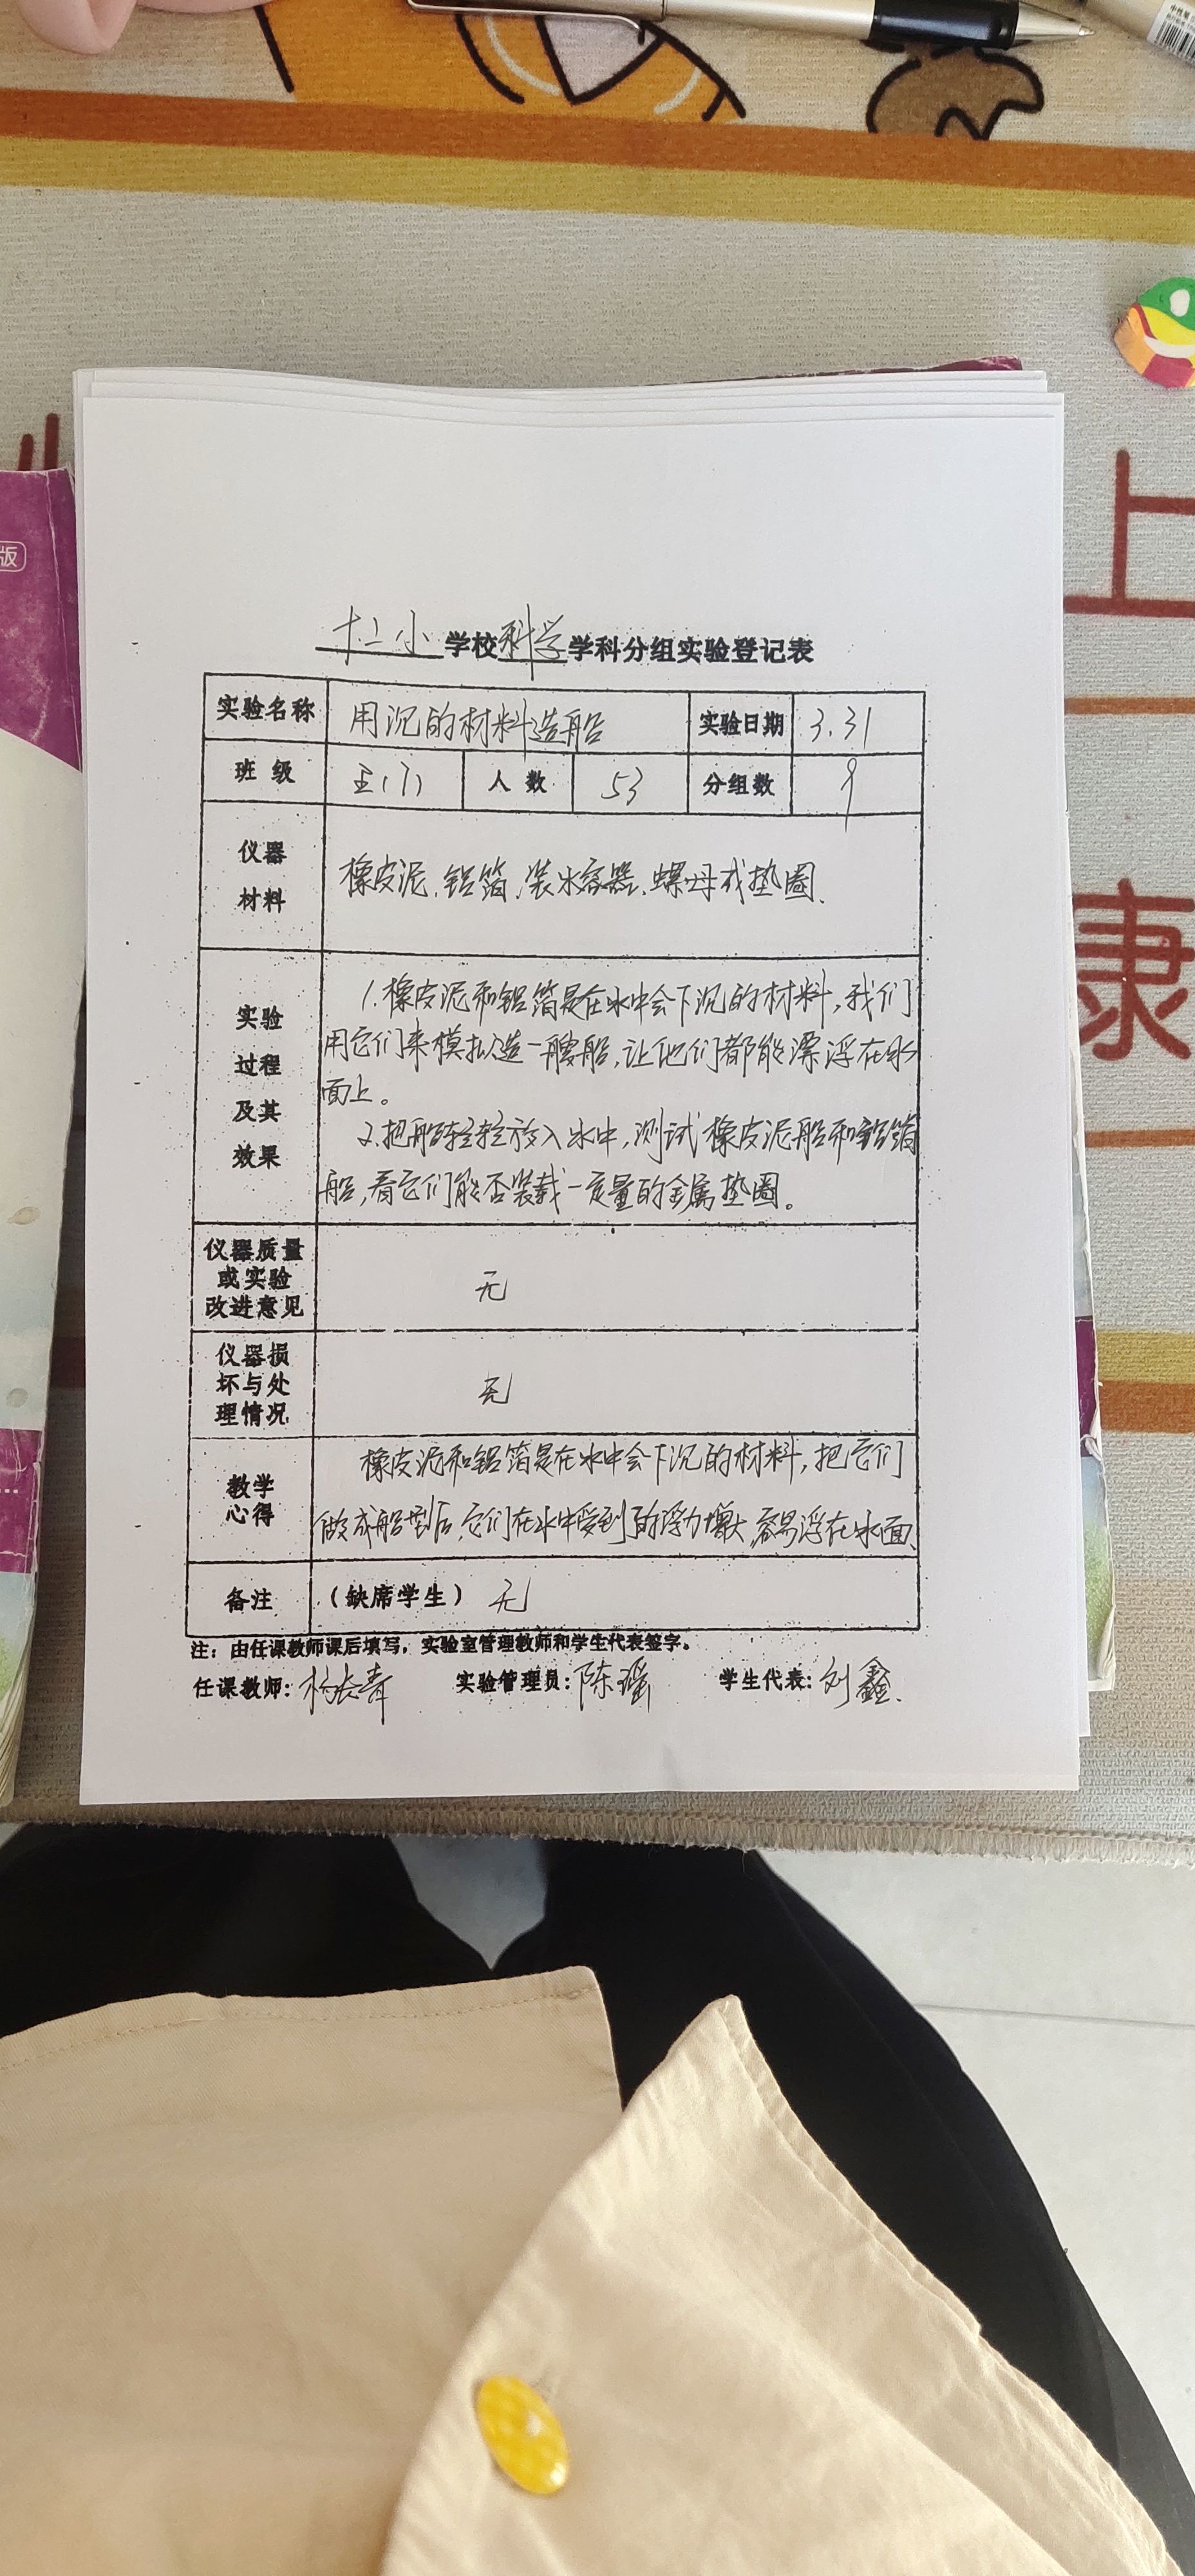 版
上
康
十二小学校科学学科分组实验登记表
实验名称 用沉的材料造船 实验日期 3.31
班级 五(7) 人数 53 分组数 9
仪器
材料
橡皮泥、铝箔、装水容器、螺母或垫圈、
实验
过程
及其
效果
1.橡皮泥和铝箔是在水中会下沉的材料,我们
用它们来模拟造一艘船,让他们都能漂浮在水
面上。
2.把船轻轻放入水中,测试橡皮泥船和铝箔
船,看它们能否装载一定量的金属垫圈。
仪器质量
或实验
改进意见
无
仪器损
坏与处
理情况
无
教学
心得
橡皮泥和铝箔是在水中会下沉的材料,把它们
做成船型后,它们在水中受到的浮力增大,容易浮在水面、
备注 (缺席学生) 无
注:由任课教师课后填写,实验室管理教师和学生代表签字。
任课教师:杨长青 实验管理员:陈瑶 学生代表:刘鑫、